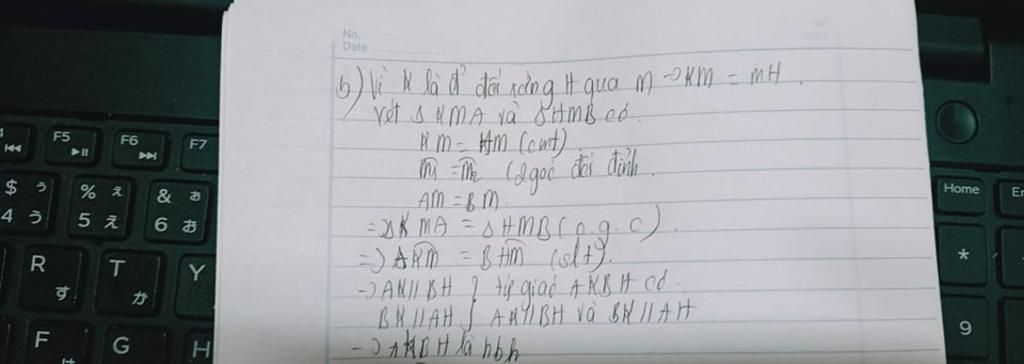 No.
Date
b) Vì K là đ' đối xứng H qua M → KM = MH.
Xét Δ KMA và Δ HMB có
KM = HM (cmt)
M1 = M2 (2 góc đối đỉnh
AM = BM
=> Δ KMA = Δ HMB (c.g.c).
=> AKM = BHM (slt).
→ AK // BH } tứ giác AKBH có
BK // AH } AK // BH và BK // AH
→ AKBH là hbh
F5
F6
F7
$ う
4 う
% え
5 え
& お
6 お
R す
T か
Y
F
G
H
Home
*
9